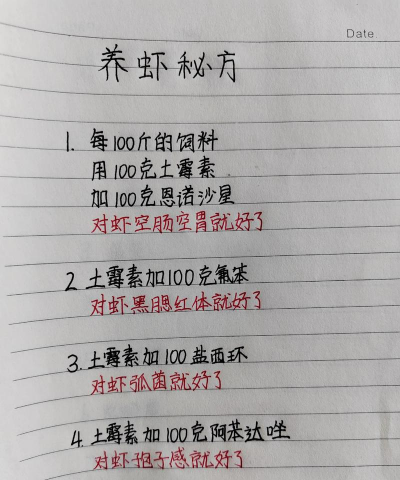 Date
养虾秘方
1. 每100斤的饲料
用100克土霉素
加100克恩诺沙星
对虾空肠空胃就好了
2 土霉素加100克氟苯
对虾黑腮红体就好了
3. 土霉素加100盐西环
对虾弧菌就好了
4. 土霉素加100克阿苯达唑
对虾孢子感就好了